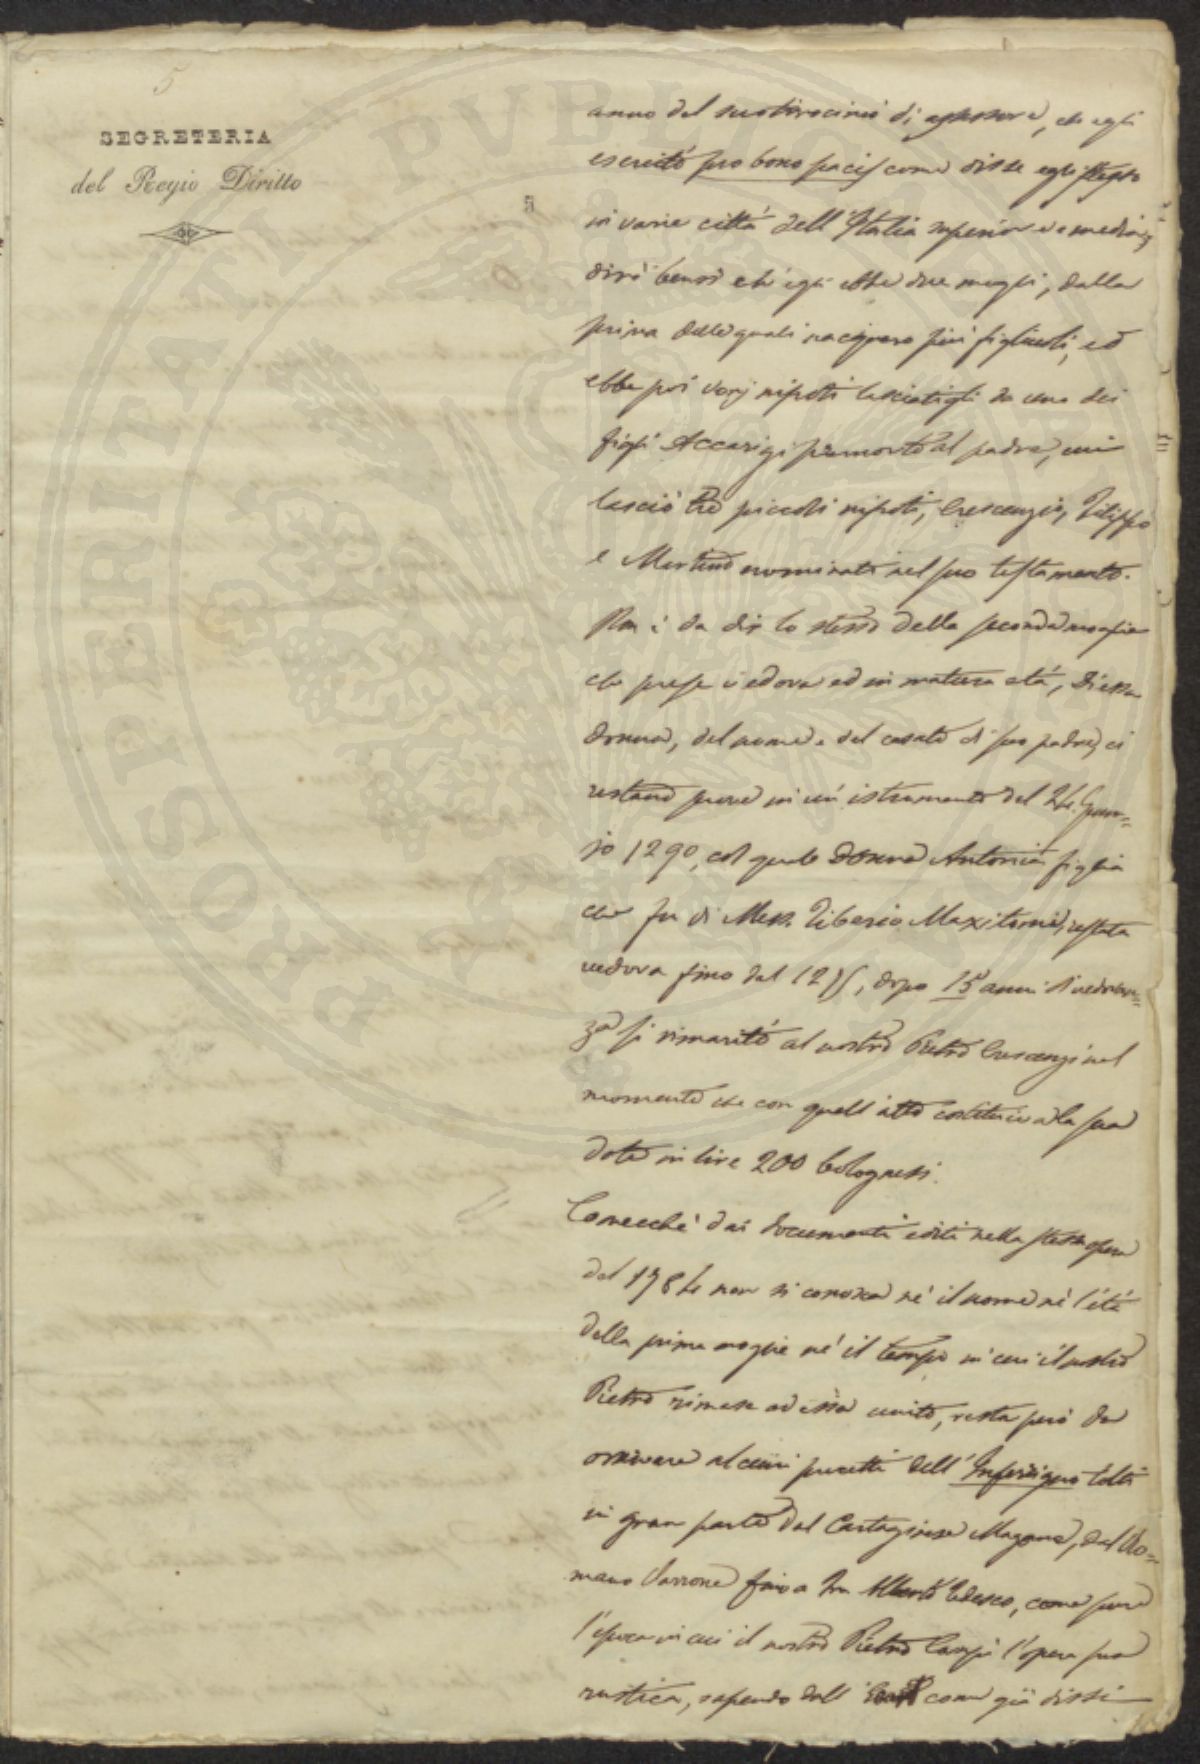 5
SEGRETERIA
del Regio Diritto
5
PROSPERITATI PVBLICAE
anno del suo tirocinio di assessore, che egli
esercitò pro bono pacis come disse egli stesso
in varie città dell'Italia superiore e media,
dirò bensì ch'egli ebbe due mogli, dalla
prima delle quali nacquero più figliuoli, ed
ebbe poi varj nipoti lasciatigli da uno dei
figli Accarigi premorto al padre, cui
lasciò tre piccoli nipoti, Crescenzio, Filippo
e Martino nominati nel suo testamento.
Non è da dir lo stesso della seconda moglie
che prese vedova ed in matura età, Di essa
donna, del nome e del casato di suo padre, ci
restano prove in un istrumento del 24. Genna=
jo 1290, col quale donna Antonia figlia
che fu di Mess. Tiberio restata
vedova fino dal 1275, dopo 15 anni di vedovan=
za si rimaritò al nostro Pietro Crescenzi nel
momento che con quell'atto costituiva la sua
dote in lire 200 bolognesi.
Comecchè dai documenti editi nella stessa opera
del 1784 non si conosca nè il nome nè l'età
della prima moglie nè il tempo in cui il nostro
Pietro rimase ad essa unito, resta però da
osservare alcuni precetti dell' tolti
in gran parte dal Cartaginese Magone, dal Ro=
mano Varrone fino a Fra Alberto Tedesco, come pure
l'epoca in cui il nostro Pietro compì l'opera sua
rustica, sapendo dall' come già dissi